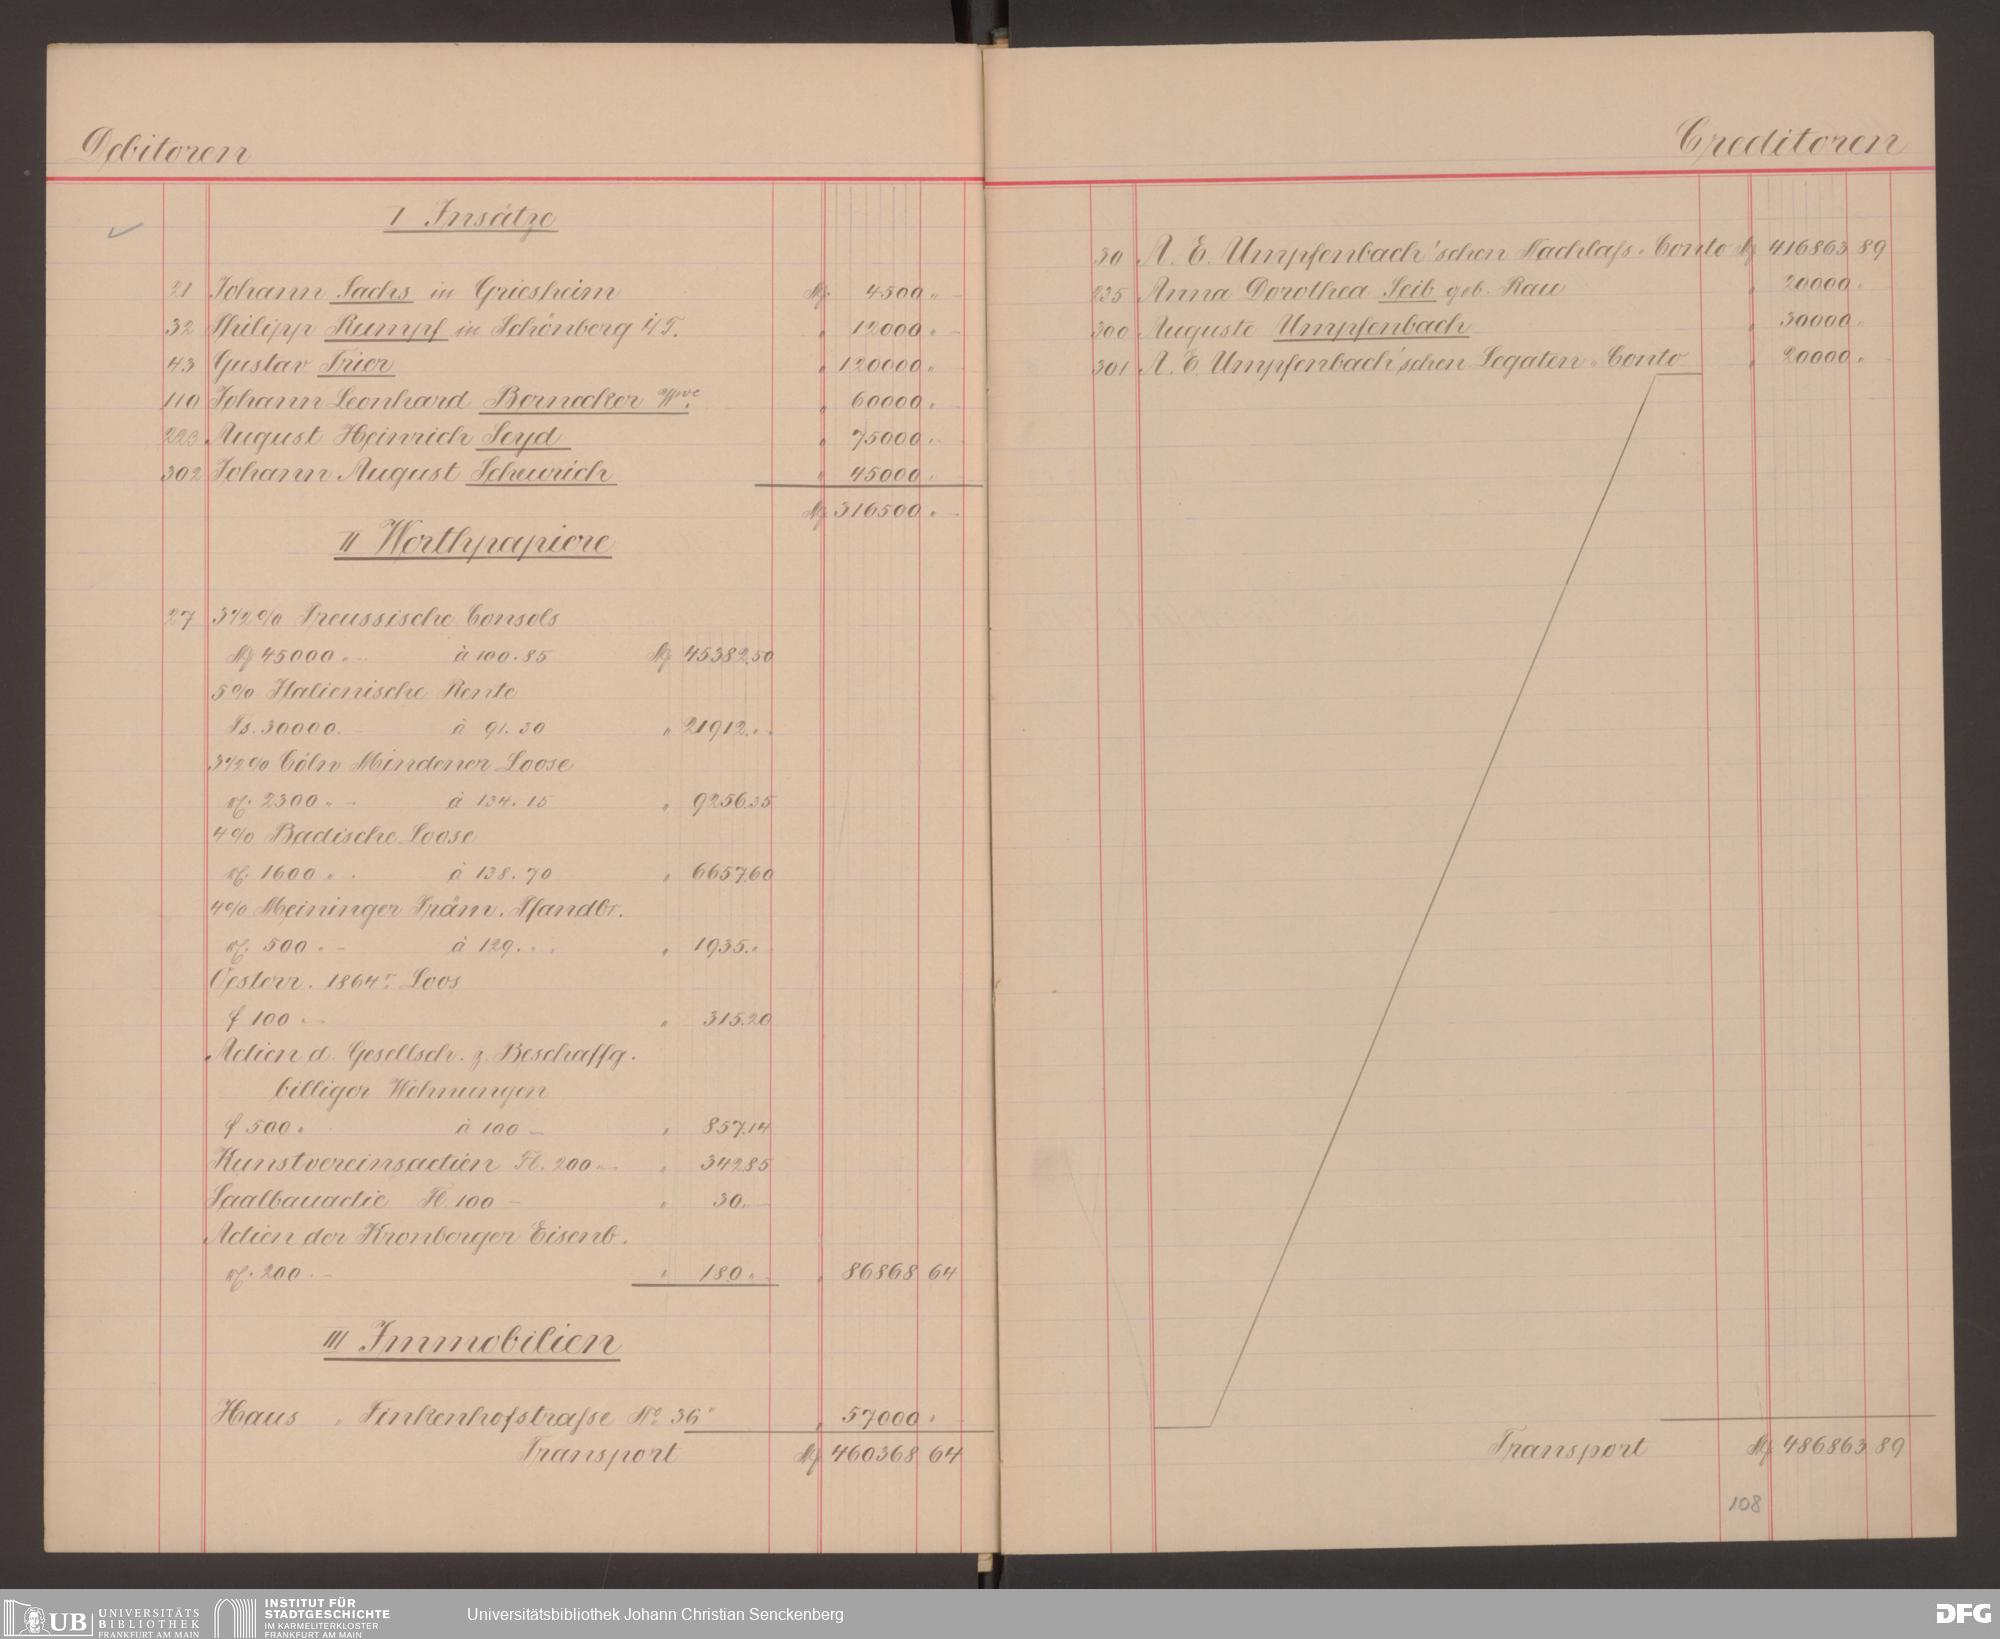 Debitoren
I Insätze
21 Johann Sachs in Griesheim M 4500 " –
32 Philipp Rumpf in Schönberg i/T. " 12000 " –
43 Gustav Trier " 120000 "
110 Johann Leonhard Bernecker " 60000 "
223 August Heinrich Seyd " 75000 "
302 Johann August Scheurich " 45000 "
M 316500 " –
II Werthpapiere
27 3 1/2 % Preussische Consols
M 45000 " – à 100.85 M 45382.50
5% Italienische Rente
Fs. 30000. – à 91.30 " 21912. "
3 1/2 % Cöln Mindener Loose
rf. 2300 " – à 134.15 " 9256.35
4% Badische Loose
rf. 1600 " à 138.70 " 6657.60
4% Meininger Präm. Pfandbr.
rf. 500 " – à 129. " 1935. "
Oesterr. 1864r Loos
f 100 " – " 315.20
Actien d. Gesellsch. z. Beschaffg.
billiger Wohnungen
f 500 " à 100 – " 857.14
Kunstvereinsactien Fl. 200 – " 342.85
Saalbauactie Fl. 100 – " 30. –
Actien der Kronberger Eisenb.
rf. 200 . – " 180 " " 86868 64
III Immobilien
Haus " Finkenhofstraſse No 36 " " 57000 "
Transport M 460368 64
Creditoren
30 A. E. Umpfenbach'schen Nachlaſs-Conto M 416863 89
235 Anna Dorothea Leib geb. Rau " 20000 "
300 Auguste Umpfenbach " 30000 "
301 A. E. Umpfenbach'schen Legaten-Conto " 20000 "
Transport M 486863 89
108
UB UNIVERSITÄTS
BIBLIOTHEK
FRANKFURT AM MAIN
INSTITUT FÜR
STADTGESCHICHTE
IM KARMELITERKLOSTER
FRANKFURT AM MAIN
Universitätsbibliothek Johann Christian Senckenberg
DFG